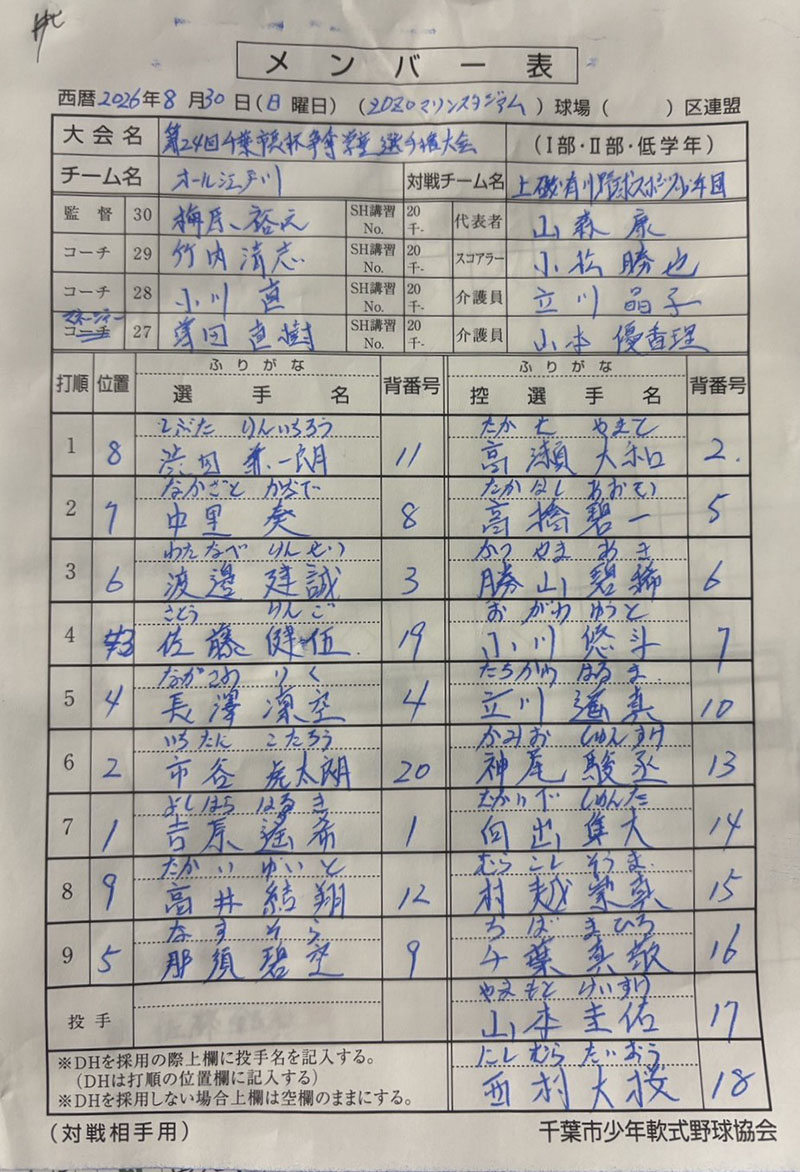 メンバー表
西暦2026年8月30日(日曜日)(ZOZOマリンスタジアム)球場( )区連盟
大会名 第24回千葉市長杯争奪学童選手権大会 (Ⅰ部・Ⅱ部・低学年)
チーム名 オール江戸川 対戦チーム名 上磯・有川野球スポーツ少年団
監督 30 梅原裕之 SH講習No. 20千- 代表者 山森康
コーチ 29 竹内清志 SH講習No. 20千- スコアラー 小松勝也
コーチ 28 小川直 SH講習No. 20千- 介護員 立川晶子
マネージャー
コーチ 27 直樹 SH講習No. 20千- 介護員 山本優香理
打順 位置 ふりがな 選手名 背番号 ふりがな 控選手名 背番号
しぶた りんいちろう たかせ やまと
1 8 渋田 一朗 11 高瀬大和 2.
なかざと かなで たかはし あおい
2 7 中里奏 8 高橋碧一 5
わたなべ けんせい かつやま あき
3 6 渡邊建誠 3 勝山碧稀 6
さとう けんご おがわ ゆうと
4 3 佐藤健伍 19 小川悠斗 7
ながさわ りく たちかわ はるま
5 4 長澤凜空 4 立川遥真 10
いちたに こたろう かみお しゅんすけ
6 2 市谷虎太朗 20 神尾駿丞 13
よしはら はるき むかいで しゅんた
7 1 吉原遥希 1 向出隼大 14
たかい ゆいと むらこし そうま
8 9 高井結翔 12 村越 真 15
なす そら ちば まひろ
9 5 那須碧空 9 千葉真敬 16
やまもと けいすけ
投手 山本圭佑 17
※DHを採用の際上欄に投手名を記入する。
(DHは打順の位置欄に記入する)
※DHを採用しない場合上欄は空欄のままにする。
にしむら たいおう
西村大桜 18
(対戦相手用) 千葉市少年軟式野球協会